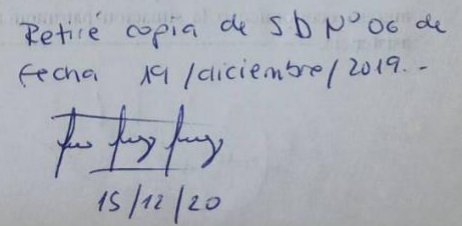 Retiré copia de SD Nº 06 de
fecha 19/diciembre/2019.-
15/12/20